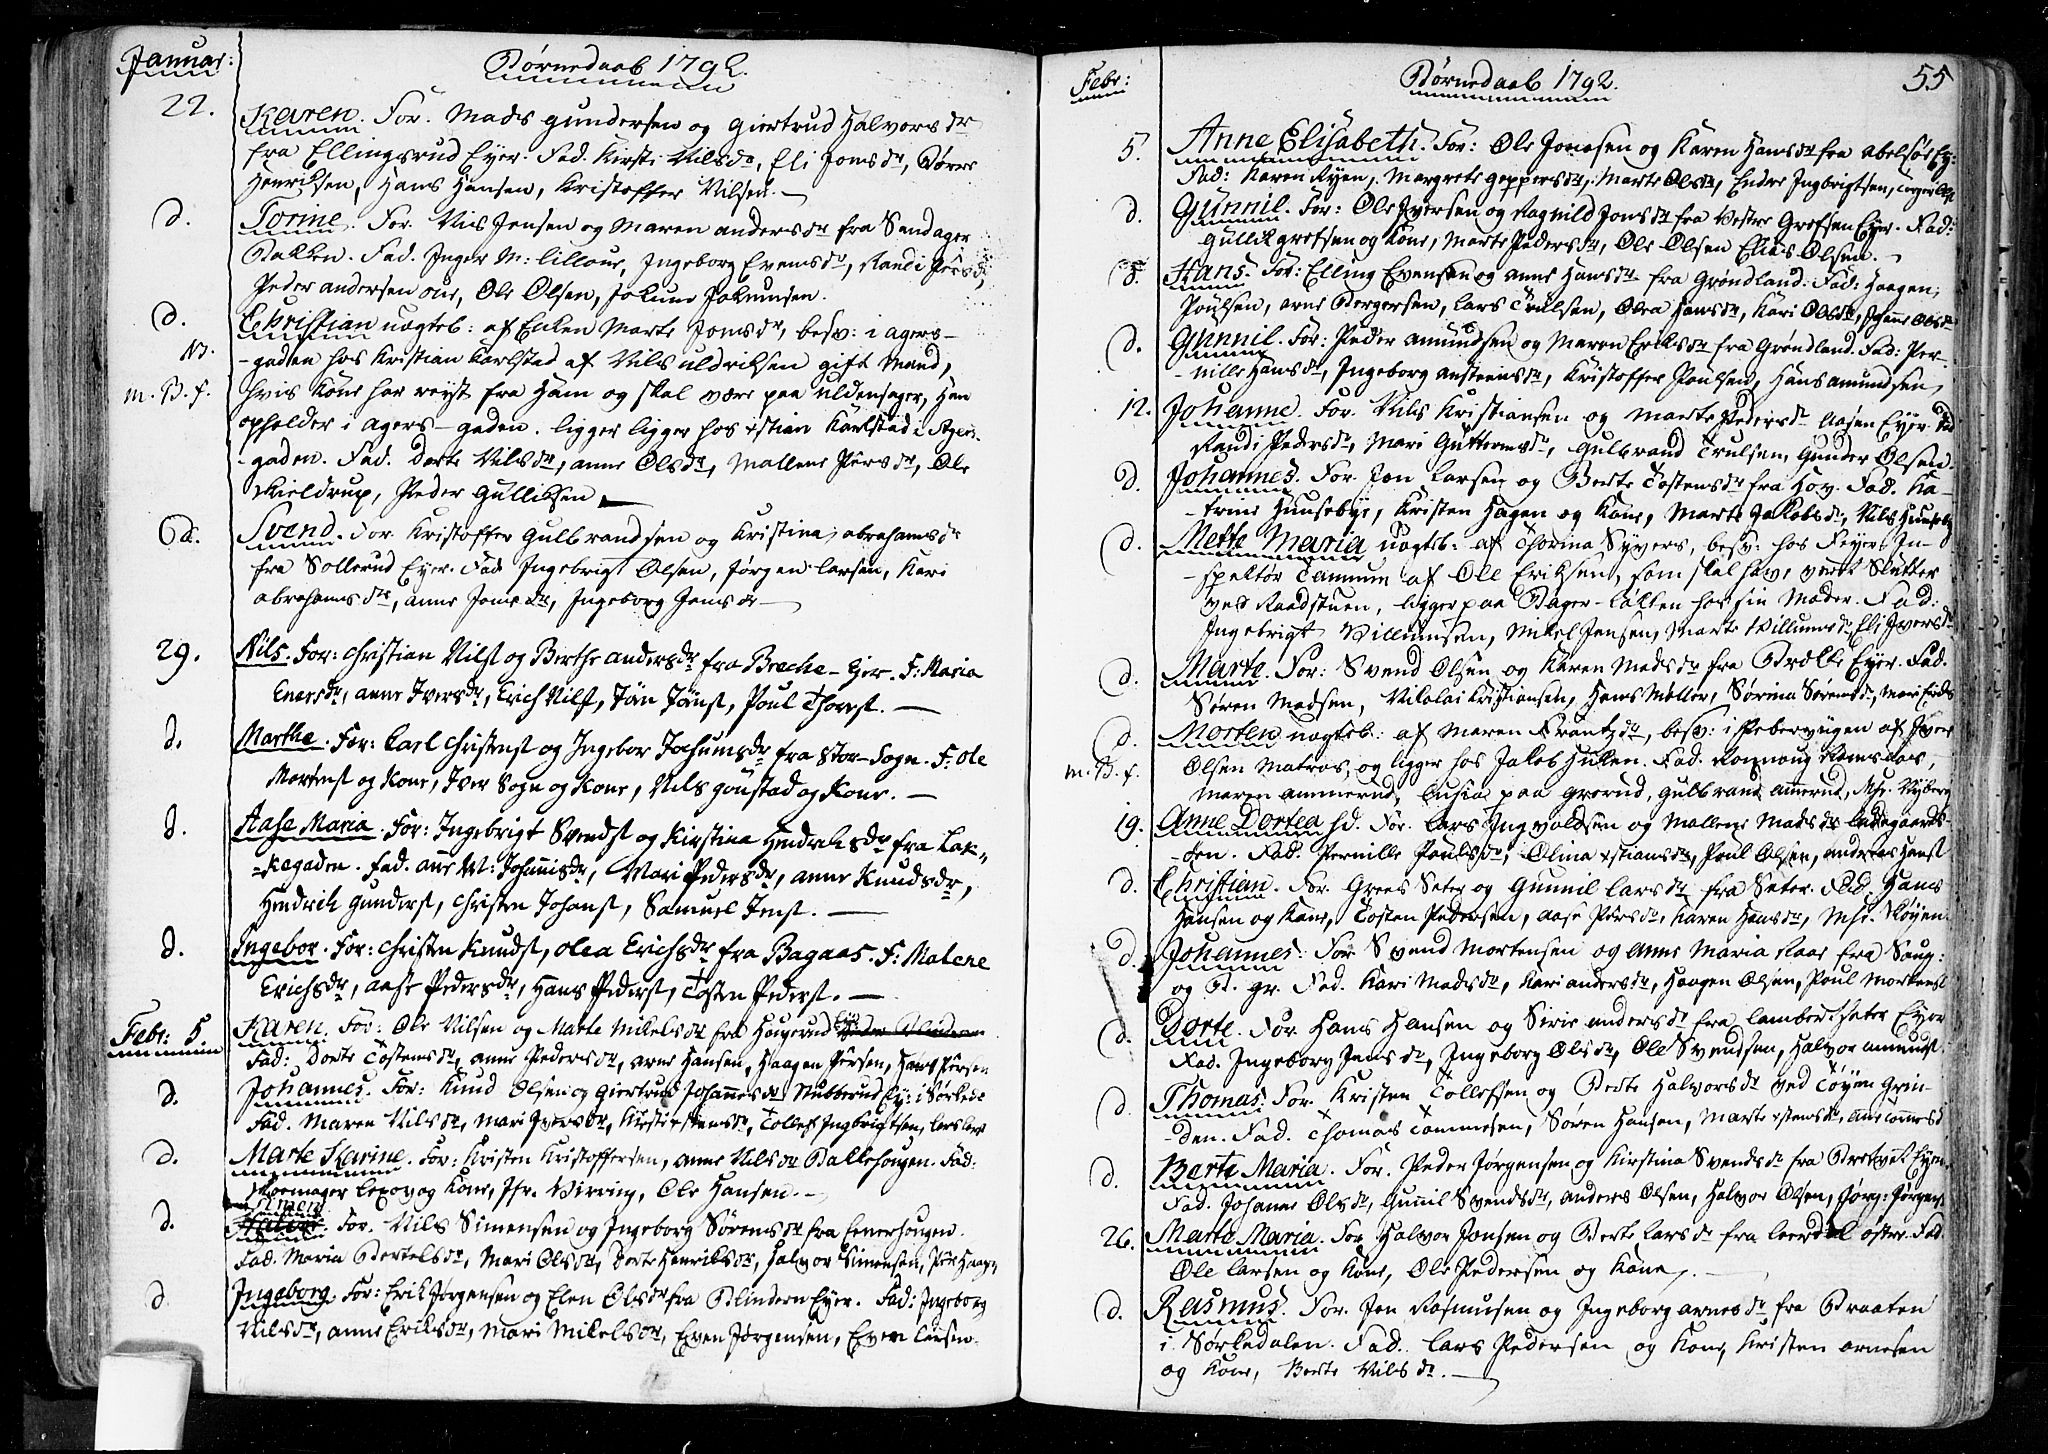 Januar:
Børnedaab 1792.
22. Karen. For. Mads Gundersen og Giertrud Halvorsdr
fra Ellingsrud Eyer. Fad. Kirsti Nilsdr, Eli Jonsdr, Børre
Henriksen, Hans Hansen, Kristoffer Nilsen.
d. Torine. For. Nils Jensen og Maren Andersdr fra Sandager
Bakken. Fad. Inger M: Lilloue, Ingeborg Evensdr, Randi Persdr,
Peder Andersen oue, Ole Olsen, Jokum Jokumsen.
d. Christian uægteb: af Enken Marte Jonsdr, besv: i Agers-
NB. -gaden hos Kristian Karlstad af Nils Uldriksen gift Mand,
m. B. f. hvis Kone har reyst fra Ham og skal være paa Ullensager, Han
opholder i Agers-gaden. ligger ligger hos xstian Karlstad i Ager-
-gaden. Fad. Dorte Nilsdr, Anne Olsdr, Mallene Persdr, Ole
Kieldrup, Peder Gulliksen
d. Svend. For Kristoffer Gulbrandsen og Kristina Abrahamsdr
fra Sollerud Eyer. Fad Ingebrigt Olsen, Jørgen Larsen, Kari
Abrahamsdr, Anne Jonsdr, Ingeborg Jensdr
29. Nils. For: Christian Nilst og Berthe Andersdr fra Breche-Ejer. F: Maria
Enersdr, Anne Iversdr, Erich Nilst, Jøn Jønst, Poul Thorst.
d. Marthe. For: Carl Christenst og Ingebor Jochumsdr fra Stor-Sogn. F: Ole
Mortenst og Kone, Iver Sogn og Kone, Nils Goustad og Kone.
d. Aase Maria. For: Ingebrigt Svendst og Kirstina Hendrichsdr fra Lak-
-kegaden. Fad. Anne M. Johannisdr, Mari Pedersdr, Anne Knudsdr,
Hendrich Gunderst, Christen Johanst, Samuel Jenst.
d. Ingebor. For: Christen Knudst, Olea Erichsdr fra Bagaas. F: Malene
Erichsdr, Aase Pedersdr, Hans Pederst, Tosten Pederst.
Febr: 5. Karen. For: Ole Nilsen og Marte Mikelsdr fra Haugerud
Fad: Dorte Tostensdr, Anne Pedersdr, Arne Hansen, Haagen Persen, Hans Persen
d. Johannes. For: Knud Olsen og Giertrud Johannesdr Stubberud Ey: i Sørked:
Fad. Maren Nilsdr, Mari Iversdr, Kirsti xstensdr, Tollef Ingbrigtsen, Lars Lars
d. Marte Karine. For: Kristen Kristoffersen, Anne Nilsdr Balkehougen. Fad:
Skoemager Lexov og Kone, Jfr. Virring, Ole Hansen.
Simen
d. Halvor. For. Nils Simensen og Ingeborg Sørensdr fra Enerhougen.
Fad. Maria Bertelsdr, Mari Olsdr, Dorte Henriksdr, Halvor Simensen, Peder Haag
d. Ingeborg. For: Erik Jørgensen og Elen Olsdr fra Blindern Eyer. Fad: Ingeborg
Nilsdr, Anne Eriksdr, Mari Mikelsdr, Even Jørgensen, Even Larsen.
Febr:
Børnedaab 1792.
55
5. Anne Elisabeth. For: Ole Jonesen og Karen Hansdr fra Abelsøe Ey:
Fad: Karen Ryen, Margrete Jeppesdr, Marte Olsdr, Endre Ingbrigtsen, Torger Ols
d. Gunnil. For: Ole Iversen og Ragnild Jonsdr fra Vestre Grefsen Eyer. Fad:
Gullik Grefsen og Kone, Marte Pedersdr, Ole Olsen Elias Olsen.
d. Hans. For: Elling Evensen og Anne Hansdr fra Grønland. Fad: Haagen
Poulsen, Arne Bergersen, Lars Trulsen, Olea Hansdr, Kari Olsdr, Johanne Olsdr
d. Gunnil. For: Peder Amundsen og Maren Eriksdr fra Grønland. Fad: Per-
-nille Hansdr, Ingeborg Austensdr, Kristoffer Poulsen, Hans Amundsen
12. Johanne. For. Nils Kristiansen og Marte Pedersdr Aasen Eyer. Fad
Randi Pedersdr, Mari Guttormsdr, Gulbrand Trulsen, Gunder Olsen.
d. Johannes. For Jon Larsen og Berte Tostensdr fra Hov. Fad. Ka-
-trine Huusebye, Kristen Hagen og Kone, Marte Jakobsdr, Nils Huuseby
d. Mette Maria uægteb: af Thorina Syvers, besv: hos Feyer In-
-spektør Tamum af Ole Eriksen, som skal hav, vært Slutter
ved Raadstuen, ligger paa Bager-løkken hos sin Moder. Fad:
Ingebrigt Villumsen, Mikel Jensen, Marte Willumsdr Eli Iversdr
d. Marte. For: Svend Olsen og Karen Madsdr fra Brække Eyer. Fad.
Søren Madsen, Nikolai Kristiansen, Hans Møller, Sørina Sørensdr, Mari Eriks
d. Morten uægteb: af Maren Frantzdr, besv: i Pebervigen af Iver
m. B. f. Olsen Matros, og ligger hos Jakob Huken. Fad. Ronnaug Ramsaas,
Maren Ammerud, Lusia paa Grorud, Gulbrand Amerud, Mfr. Nyberg
19. Anne Dortea hd. For. Lars Ingvaldsen og Mallene Madsdr Ladegaards-
-øen. Fad. Pernille Poulsdr, Olina xstiansdr, Poul Olsen, Andreas Hanst
d. Christian. For. Grees Seter og Gunnil Larsdr fra Seter. Fad. Hans
Hansen og Kone, Tosten Pedersen, Aase Persdr, Karen Hansdr, Mfr. Røyen.
d. Johannes. For Svend Mortensen og Anne Maria Aas fra Soug:
og B. gr. Fad. Kari Madsdr, Kari Andersdr, Haagen Olsen, Poul Mortenst
d. Dorte. For Hans Hansen og Sirie Andersdr fra Lambertseter Eyer
Fad. Ingeborg Jensdr, Ingeborg Olsdr, Ole Svendsen, Halvor Amundst.
d. Thomas. For. Kristen Tollefsen og Berte Halvorsdr ved Tøyen Grin-
-den. Fad. Thomas Tommesen, Søren Hansen, Marte xstensdr, Anne Tomesd
d. Berte Maria. For. Peder Jørgensen og Kirstina Svendsdr fra Bretvet Eyer.
Fad. Johanne Olsdr, Gunnil Svendsdr, Anders Olsen, Halvor Olsen, Jørg: Jørgens
26. Marte Maria. For. Halvor Jonsen og Berte Larsdr fra Leerdal Oster. Fad.
Ole Larsen og Kone, Ole Pedersen og Kone.
d. Rasmus. For. Jon Rasmusen og Ingeborg Arnesdr fra Braaten
i Sørkedalen. Fad. Lars Pedersen og Kone, Kristen Arnesen
og Kone, Berte Nilsdr.